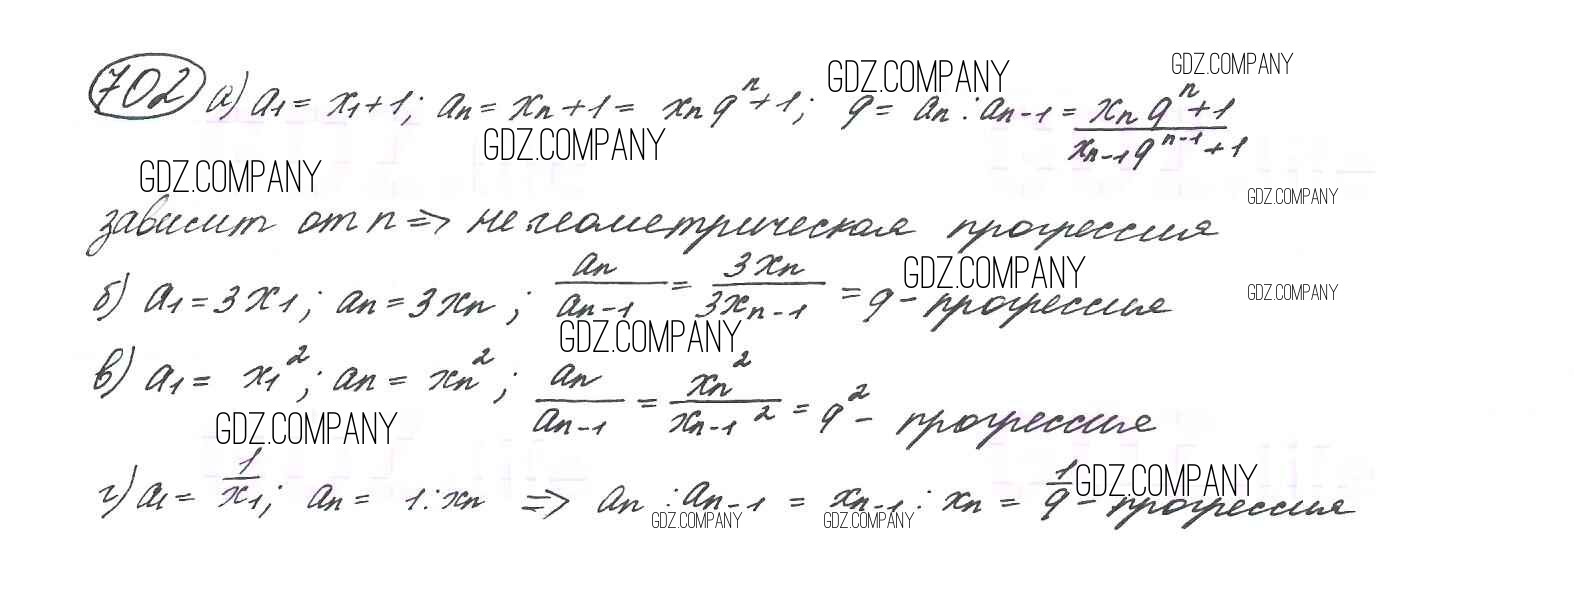 702 а) a₁ = x₁ + 1; aₙ = xₙ + 1 = xₙ qⁿ + 1; q = aₙ : aₙ₋₁ = (xₙ qⁿ + 1)/(xₙ₋₁ qⁿ⁻¹ + 1)
GDZ.COMPANY GDZ.COMPANY
GDZ.COMPANY
GDZ.COMPANY
GDZ.COMPANY
зависит от n => не геометрическая прогрессия
GDZ.COMPANY
б) a₁ = 3x₁; aₙ = 3xₙ; aₙ/aₙ₋₁ = 3xₙ/3xₙ₋₁ = q - прогрессия
GDZ.COMPANY
GDZ.COMPANY
в) a₁ = x₁²; aₙ = xₙ²; aₙ/aₙ₋₁ = xₙ²/xₙ₋₁² = q² - прогрессия
GDZ.COMPANY
г) a₁ = 1/x₁; aₙ = 1 : xₙ => aₙ : aₙ₋₁ = xₙ₋₁ : xₙ = 1/q - прогрессия
GDZ.COMPANY
GDZ.COMPANY GDZ.COMPANY